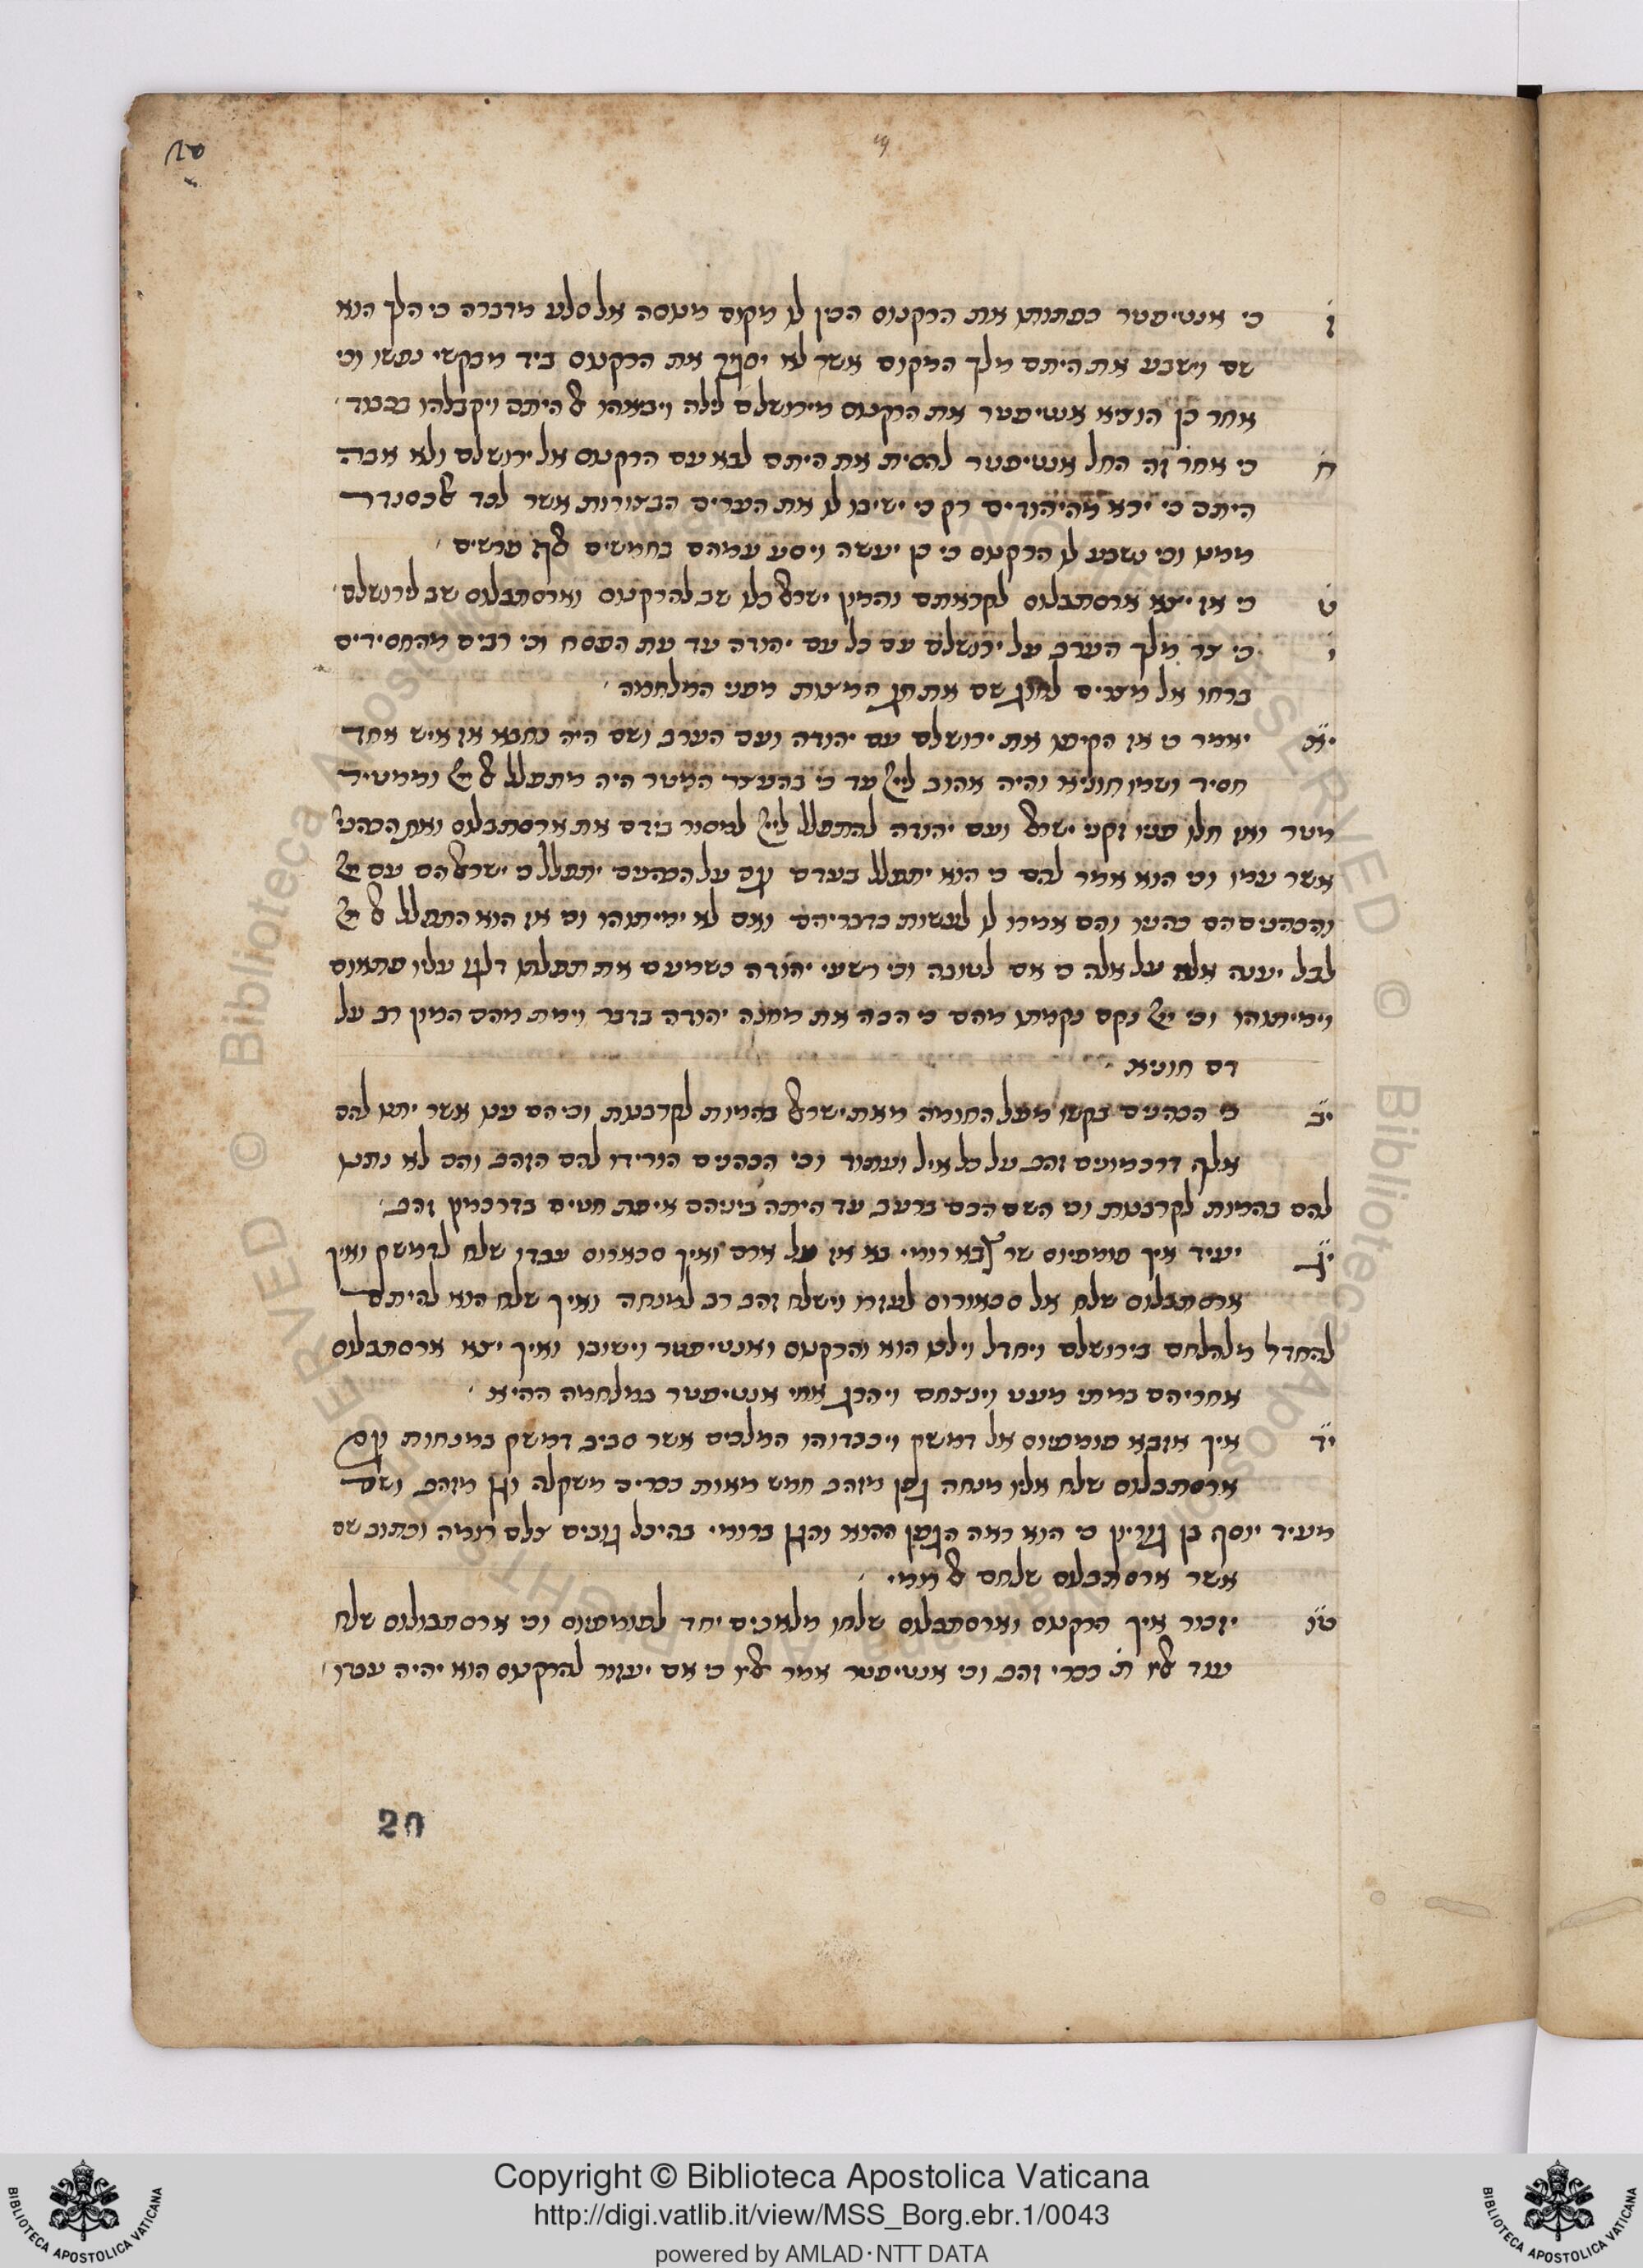 ז כי אנטיפטר כפתותו את הרקנוס הכין לו מקום מנוסה אל סלע מדברה כי הלך הוא
שם וישבע את היתם מלך המקום אשר לא יסגר את הרקנוס ביד מבקשי נפשו וכי
אחר כן הוציא אנטיפטר את הרקנוס מירושלם לילה ויבואהו אל היתם ויקבלהו בכבוד
ח כי אחר זה החל אנטיפטר להסית את היתם לבא עם הרקנוס אל ירושלם ולא אבה
היתם כי ירא מהיהודים רק כי ישיבו לו את הערים הבצורות אשר לכד אלכסנדר
ממנו וכי נשבע לו הרקנוס כי כן יעשה ויסע עמהם בחמשים אלף פרשים
ט כי אז יצא ארסתבלוס לקראתם והמון ישראל כלו שב להרקנוס וארסתבלוס שב לירושלם
י כי צר מלך הערב על ירושלם עם כל עם יהודה עד עת הפסח וכי רבים מהחסידים
ברחו אל מצרים לחוג שם את חג המצות מפני המלחמה
יא יאמר כי אז הקיפו את ירושלם עם יהודה ועם הערב ושם היה נחבא אז איש אחד
חסיד ושמו חוניא והיה אהוב לייי עד כי בהעצר המטר היה מתפלל אל ייי וממטיר
מטר ואז חלו פניו זקני ישראל ועם יהודה להתפלל לייי למסור בידם את ארסתבלוס ואת הכהני
אשר עמו וכי הוא אמר להם כי הוא יתפלל בעדם גם על הכהנים יתפלל כי ישראל הם עם ייי
והכהנים הם כהניו והם אמרו לו לעשות כדבריהם ואם לא ימיתוהו וכי אז הוא התפלל אל ייי
לבל יענה אלה על אלה כי אם לטובה וכי רשעי יהודה כשמעם את תפלתו דלגו עליו פתאום
וימיתוהו וכי ייי נקם נקמתו מהם כי הכה את מחנה יהודה בדבר וימת מהם המון רב על
דם חוניא
יב כי הכהנים בקשו מעל החומה מאת ישראל בהמות לקרבנות וכי הם ענו אשר יתנו להם
אלף דרכמונים זהב על כל איל ועתוד וכי הכהנים הורידו להם הזהב והם לא נתנו
להם בהמות לקרבנות וכי השם הכם ברעב עד היתה ביניהם איפת חטים בדרכמון זהב
יג יעיד איך פומפיוס שר צבא רומי בא אז אל ארם ואיך סכארוס עבדו שלח לדמשק ואיך
ארסתבלוס שלח אל סכאורוס לעזרו וישלח זהב רב למנחה ואיך שלח הוא להיתם
להחדל מלהלחם בירושלם ויחדל וילכו הוא והרקנוס ואנטיפטר וישובו ואיך יצא ארסתבלוס
אחריהם במתי מעט וינצחם ויהרג אחי אנטיפטר במלחמה ההיא
יד איך אז בא פומפיוס אל דמשק ויכבדוהו המלכים אשר סביב דמשק במנחות וגם
ארסתבלוס שלח אליו מנחה גפן מזהב חמש מאות ככרים משקלה וגן מזהב ושם
מעיד יוסף בן גוריון כי הוא ראה הגפן ההוא והגן ברומי בהיכל גובים צלם רומה וכתוב שם
אשר ארסתבלוס שלחם אל רומי
טו יזכור איך הרקנוס וארסתבלוס שלחו מלאכים יחד לפומפיוס וכי ארסתבולוס שלח
עוד אליו ת ככרי זהב וכי אנטיפטר אמר אליו כי אם יעזור להרקנוס הוא יהיה עבדו
20
Copyright © Biblioteca Apostolica Vaticana
http://digi.vatlib.it/view/MSS_Borg.ebr.1/0043
powered by AMLAD · NTT DATA